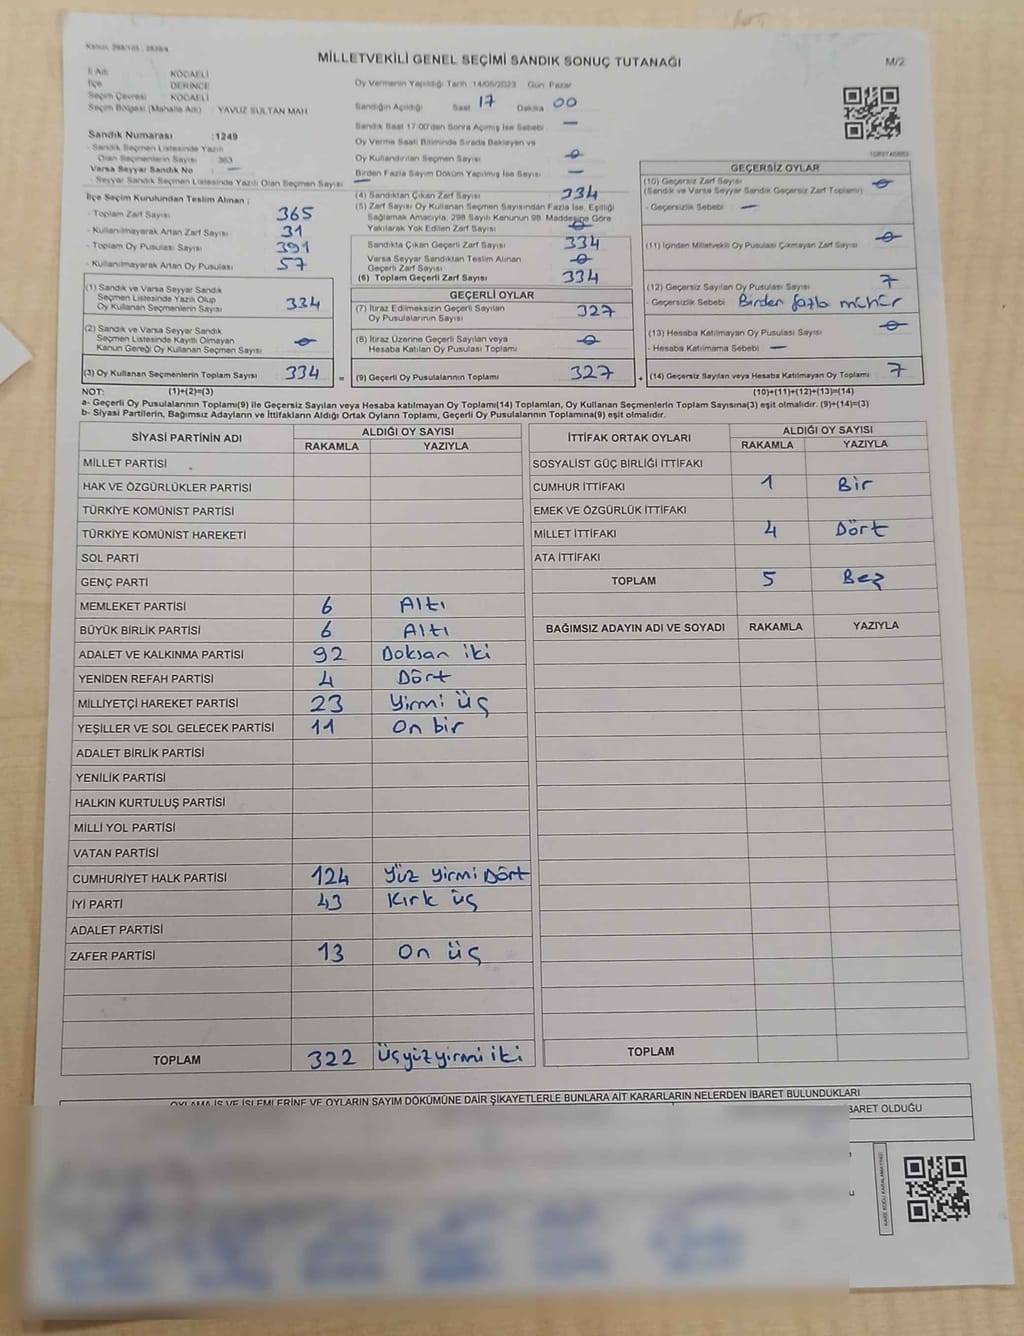 MİLLETVEKİLİ GENEL SEÇİMİ SANDIK SONUÇ TUTANAĞI
M/2
İl Adı KOCAELİ
İlçe DERİNCE
Seçim Çevresi KOCAELİ
Seçim Bölgesi (Mahalle Adı) YAVUZ SULTAN MAH
Sandık Numarası :1249
- Sandık Seçmen Listesinde Yazılı
Olan Seçmenlerin Sayısı 363
Varsa Seyyar Sandık No —
- Seyyar Sandık Seçmen Listesinde Yazılı Olan Seçmen Sayısı —
İlçe Seçim Kurulundan Teslim Alınan ;
- Toplam Zarf Sayısı 365
- Kullanılmayarak Artan Zarf Sayısı 31
- Toplam Oy Pusulası Sayısı 391
- Kullanılmayarak Artan Oy Pusulası 57
(1) Sandık ve Varsa Seyyar Sandık
Seçmen Listesinde Yazılı Olup
Oy Kullanan Seçmenlerin Sayısı 334
(2) Sandık ve Varsa Seyyar Sandık
Seçmen Listesinde Kayıtlı Olmayan
Kanun Gereği Oy Kullanan Seçmen Sayısı 0
(3) Oy Kullanan Seçmenlerin Toplam Sayısı 334
Oy Vermenin Yapıldığı Tarih 14/05/2023 Gün Pazar
Sandığın Açıldığı Saat 17 Dakika 00
Sandık Saat 17:00'den Sonra Açılmış İse Sebebi —
Oy Verme Saati Bitiminde Sırada Bekleyen ve
Oy Kullandırılan Seçmen Sayısı 0
Birden Fazla Sayım Döküm Yapılmış İse Sayısı —
(4) Sandıktan Çıkan Zarf Sayısı 334
(5) Zarf Sayısı Oy Kullanan Seçmen Sayısından Fazla İse, Eşitliği
Sağlamak Amacıyla, 298 Sayılı Kanunun 98. Maddesine Göre
Yakılarak Yok Edilen Zarf Sayısı 0
Sandıkta Çıkan Geçerli Zarf Sayısı 334
Varsa Seyyar Sandıktan Teslim Alınan
Geçerli Zarf Sayısı 0
(6) Toplam Geçerli Zarf Sayısı 334
GEÇERLİ OYLAR
(7) İtiraz Edilmeksizin Geçerli Sayılan
Oy Pusulalarının Sayısı 327
(8) İtiraz Üzerine Geçerli Sayılan veya
Hesaba Katılan Oy Pusulası Toplamı 0
= (9) Geçerli Oy Pusulalarının Toplamı 327
GEÇERSİZ OYLAR
(10) Geçersiz Zarf Sayısı 0
(Sandık ve Varsa Seyyar Sandık Geçersiz Zarf Toplamı)
- Geçersizlik Sebebi —
(11) İçinden Milletvekili Oy Pusulası Çıkmayan Zarf Sayısı 0
(12) Geçersiz Sayılan Oy Pusulası Sayısı 7
- Geçersizlik Sebebi Birden fazla mühür
(13) Hesaba Katılmayan Oy Pusulası Sayısı 0
- Hesaba Katılmama Sebebi —
+ (14) Geçersiz Sayılan veya Hesaba Katılmayan Oy Toplamı 7
NOT: (1)+(2)=(3) (10)+(11)+(12)+(13)=(14)
a- Geçerli Oy Pusulalarının Toplamı(9) ile Geçersiz Sayılan veya Hesaba katılmayan Oy Toplamı(14) Toplamları, Oy Kullanan Seçmenlerin Toplam Sayısına(3) eşit olmalıdır. (9)+(14)=(3)
b- Siyasi Partilerin, Bağımsız Adayların ve İttifakların Aldığı Ortak Oyların Toplamı, Geçerli Oy Pusulalarının Toplamına(9) eşit olmalıdır.
SİYASİ PARTİNİN ADI ALDIĞI OY SAYISI
RAKAMLA YAZIYLA
MİLLET PARTİSİ
HAK VE ÖZGÜRLÜKLER PARTİSİ
TÜRKİYE KOMÜNİST PARTİSİ
TÜRKİYE KOMÜNİST HAREKETİ
SOL PARTİ
GENÇ PARTİ
MEMLEKET PARTİSİ 6 Altı
BÜYÜK BİRLİK PARTİSİ 6 Altı
ADALET VE KALKINMA PARTİSİ 92 Doksan iki
YENİDEN REFAH PARTİSİ 4 Dört
MİLLİYETÇİ HAREKET PARTİSİ 23 Yirmi üç
YEŞİLLER VE SOL GELECEK PARTİSİ 11 On bir
ADALET BİRLİK PARTİSİ
YENİLİK PARTİSİ
HALKIN KURTULUŞ PARTİSİ
MİLLİ YOL PARTİSİ
VATAN PARTİSİ
CUMHURİYET HALK PARTİSİ 124 Yüz yirmi Dört
İYİ PARTİ 43 Kırk üç
ADALET PARTİSİ
ZAFER PARTİSİ 13 On üç
TOPLAM 322 Üçyüzyirmi iki
İTTİFAK ORTAK OYLARI ALDIĞI OY SAYISI
RAKAMLA YAZIYLA
SOSYALİST GÜÇ BİRLİĞİ İTTİFAKI
CUMHUR İTTİFAKI 1 Bir
EMEK VE ÖZGÜRLÜK İTTİFAKI
MİLLET İTTİFAKI 4 Dört
ATA İTTİFAKI
TOPLAM 5 Beş
BAĞIMSIZ ADAYIN ADI VE SOYADI RAKAMLA YAZIYLA
TOPLAM
OYLAMA İŞ VE İŞLEMLERİNE VE OYLARIN SAYIM DÖKÜMÜNE DAİR ŞİKAYETLERLE BUNLARA AİT KARARLARIN NELERDEN İBARET BULUNDUKLARI
BARET OLDUĞU